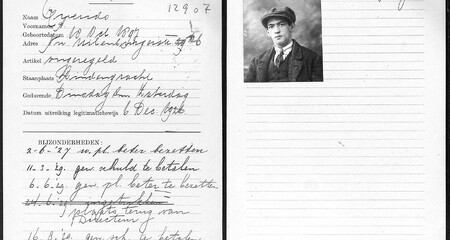 12907
Naam Oyendo
Voornamen J.
Geboortedatum 18 Oct 1897
Adres
Artikel ongeregeld
Staanplaats Lindengracht
Gedurende Dinsdag Zaterdag
Datum uitreiking legitimatiebewijs 6 Dec. 1926
BIJZONDERHEDEN:
2-6-'27 w. pl. beter bezetten
11-3-'29. gew. schuld te betalen
6-6-'29. gew. pl. beter te bezetten
ingetrokken
plaats terug van
Directeur
16-8-'29. gew. sch. te betalen